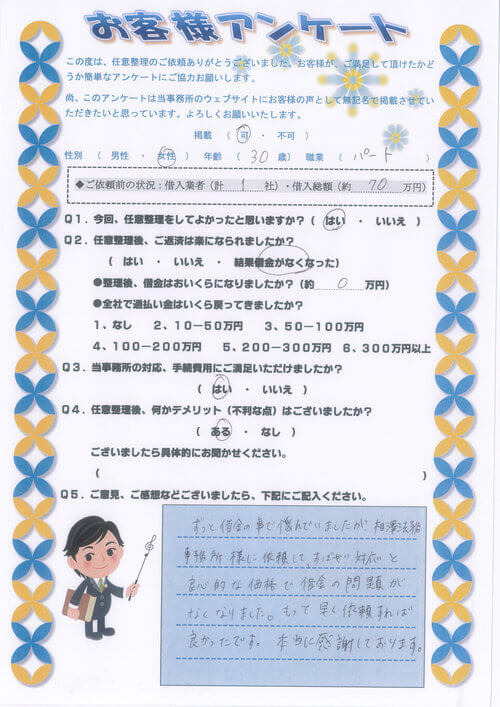 お客様アンケート
この度は、任意整理のご依頼ありがとうございました。お客様が、ご満足して頂けたかど
うか簡単なアンケートにご協力お願いします。
尚、このアンケートは当事務所のウェブサイトにお客様の声として無記名で掲載させてい
ただきたいと思っています。よろしくお願いいたします。
掲載 ( 可 ・ 不可 )
性別 ( 男性 ・ 女性 ) 年齢 ( 30 歳) 職業 ( パート )
◆ご依頼前の状況:借入業者(計 1 社)・借入総額(約 70 万円)
Q1. 今回、任意整理をしてよかったと思いますか?( はい ・ いいえ )
Q2. 任意整理後、ご返済は楽になられましたか?
( はい ・ いいえ ・ 結果借金がなくなった)
●整理後、借金はおいくらになりましたか?(約 0 万円)
●全社で過払い金はいくら戻ってきましたか?
1、なし 2、10-50万円 3、50-100万円
4、100-200万円 5、200-300万円 6、300万円以上
Q3. 当事務所の対応、手続費用にご満足いただけましたか?
( はい ・ いいえ )
Q4. 任意整理後、何かデメリット(不利な点)はございましたか?
( ある ・ なし )
ございましたら具体的にお聞かせください。
( )
Q5. ご意見、ご感想などございましたら、下記にご記入ください。
ずっと借金の事で悩んでいましたが 相澤法務
事務所 様に依頼して、すばやい対応と
良心的な価格で借金の問題が
なくなりました。もって早く依頼すれば
良かったです。 本当に感謝しております。